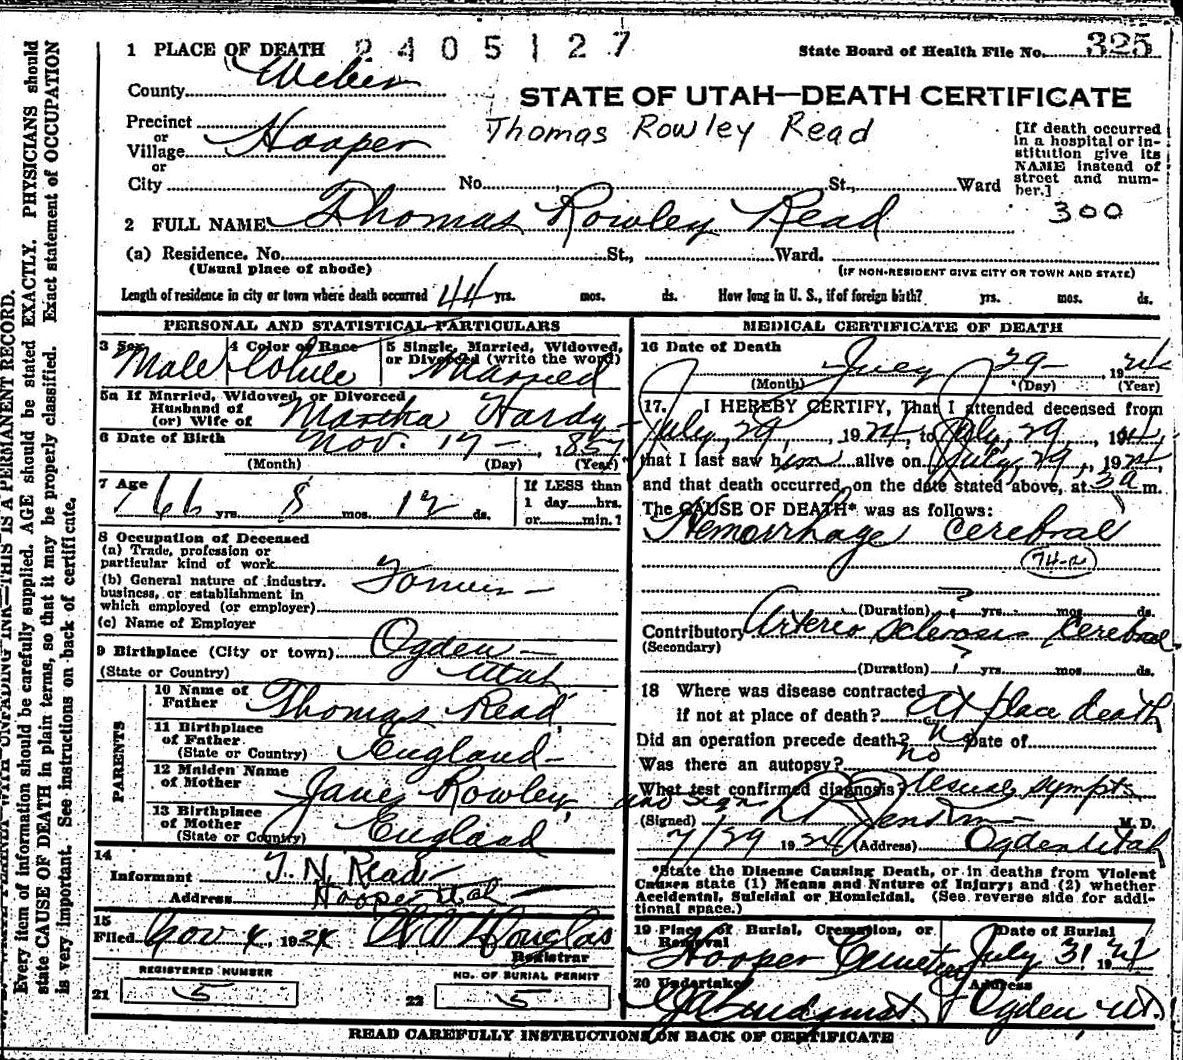 1 PLACE OF DEATH 2405127 State Board of Health File No. 325
County Weber
STATE OF UTAH—DEATH CERTIFICATE
Thomas Rowley Read
Precinct
or
Village Hooper
or
City No. St., Ward
[If death occurred
in a hospital or in-
stitution give its
NAME instead of
street and num-
ber.]
300
2 FULL NAME Thomas Rowley Read
(a) Residence. No. St., Ward.
(Usual place of abode) (IF NON-RESIDENT GIVE CITY OR TOWN AND STATE)
Length of residence in city or town where death occurred 44 yrs. mos. ds. How long in U. S., if of foreign birth? yrs. mos. ds.
PERSONAL AND STATISTICAL PARTICULARS
3 Sex 4 Color or Race 5 Single, Married, Widowed,
or Divorced (write the word)
Male White Married
5a If Married, Widowed, or Divorced
Husband of
(or) Wife of Martha Hardy
6 Date of Birth Nov. 17 1857
(Month) (Day) (Year)
7 Age 66 yrs. 8 mos. 12 ds.
If LESS than
1 day hrs.
or min.?
8 Occupation of Deceased
(a) Trade, profession or
particular kind of work Farmer
(b) General nature of industry,
business, or establishment in
which employed (or employer)
(c) Name of Employer
9 Birthplace (City or town) Ogden
(State or Country) Utah
PARENTS
10 Name of
Father Thomas Read
11 Birthplace
of Father
(State or Country) England
12 Maiden Name
of Mother Jane Rowley
13 Birthplace
of Mother
(State or Country) England
14
Informant T. N. Read
Address Hooper Utah
15
Filed Nov 4, 1924 Douglas
Registrar
REGISTERED NUMBER NO. OF BURIAL PERMIT
21 5 22 5
MEDICAL CERTIFICATE OF DEATH
16 Date of Death July 29 1924
(Month) (Day) (Year)
17. I HEREBY CERTIFY, That I attended deceased from
July 29, 1924, to July 29, 1924,
that I last saw him alive on July 29, 1924,
and that death occurred, on the date stated above, at 3 a m.
The CAUSE OF DEATH* was as follows:
Hemorrhage cerebral
74-a
(Duration) ? yrs. mos. ds.
Contributory Arterio Sclerosis Cerebral
(Secondary)
(Duration) ? yrs. mos. ds.
18 Where was disease contracted
if not at place of death? At place death
Did an operation precede death? No Date of
Was there an autopsy? no
What test confirmed diagnosis? Usual sympts
and signs
(Signed) M. D.
7/29 1924 (Address) Ogden Utah
*State the Disease Causing Death, or in deaths from Violent
Causes state (1) Means and Nature of Injury; and (2) whether
Accidental, Suicidal or Homicidal. (See reverse side for addi-
tional space.)
19 Place of Burial, Cremation, or
Removal Date of Burial
Hooper Cemetery July 31 1924
20 Undertaker Address
Lindquist Ogden, Ut.
READ CAREFULLY INSTRUCTIONS ON BACK OF CERTIFICATE
WITH UNFADING INK—THIS IS A PERMANENT RECORD.
Every item of information should be carefully supplied. AGE should be stated EXACTLY. PHYSICIANS should
state CAUSE OF DEATH in plain terms, so that it may be properly classified. Exact statement of OCCUPATION
is very important. See instructions on back of certificate.